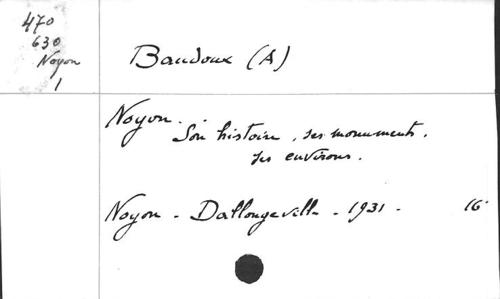 470
630
Noyon
1
Baudoux (A)
Noyon.
Son histoire, ses monuments.
ses environs.
Noyon - Dallongeville - 1931 - 16°